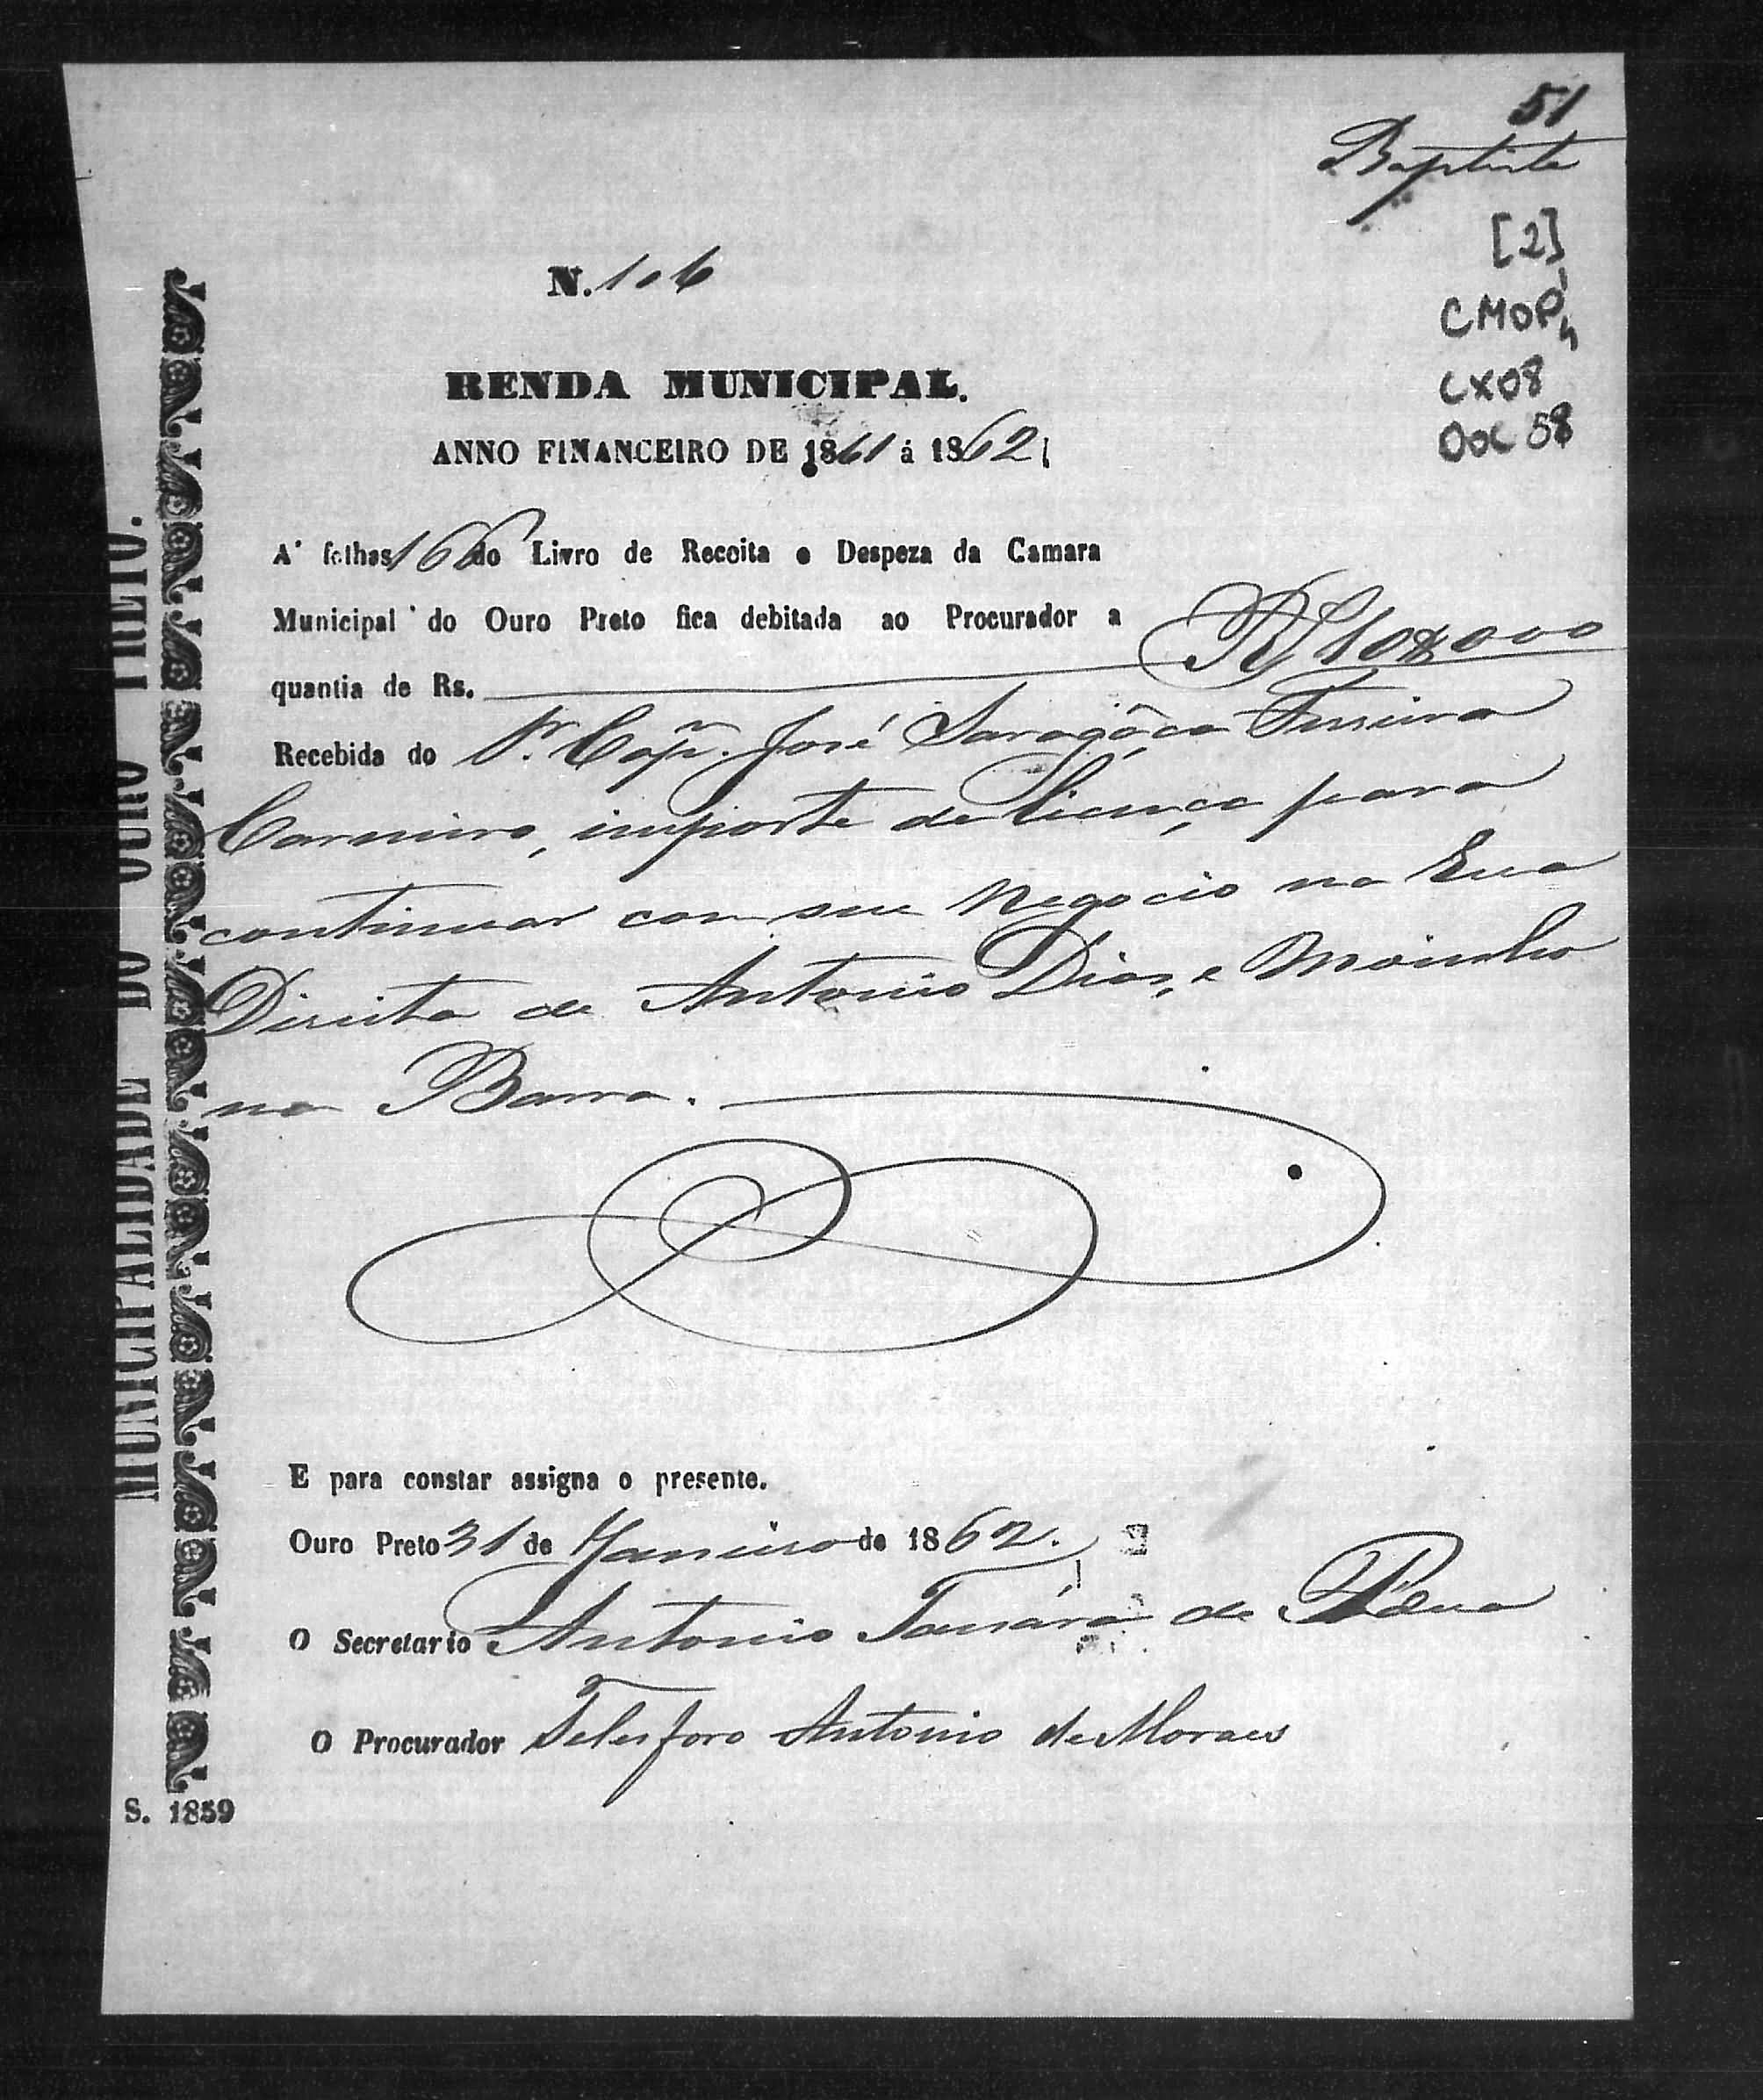 51
Baptista
[2]
CMOP
CX08
DOC 58
N. 106
RENDA MUNICIPAL.
ANNO FINANCEIRO DE 1861 á 1862
A' folhas 166 do Livro de Receita e Despeza da Camara
Municipal do Ouro Preto fica debitada ao Procurador a
quantia de Rs. Rs 10$000
Recebida do Sr. Capm. José Saragôça Ferreira
Carneiro, importe de licença para
continuar com seu negocio na Rua
Direita de Antonio Dias, e Moinho
na Barra.
E para constar assigna o presente.
Ouro Preto 31 de Janeiro de 1862.
O Secretario Antonio de
O Procurador Telesforo Antonio de Moraes
S. 1859
MUNICIPALIDADE DO OURO PRETO.